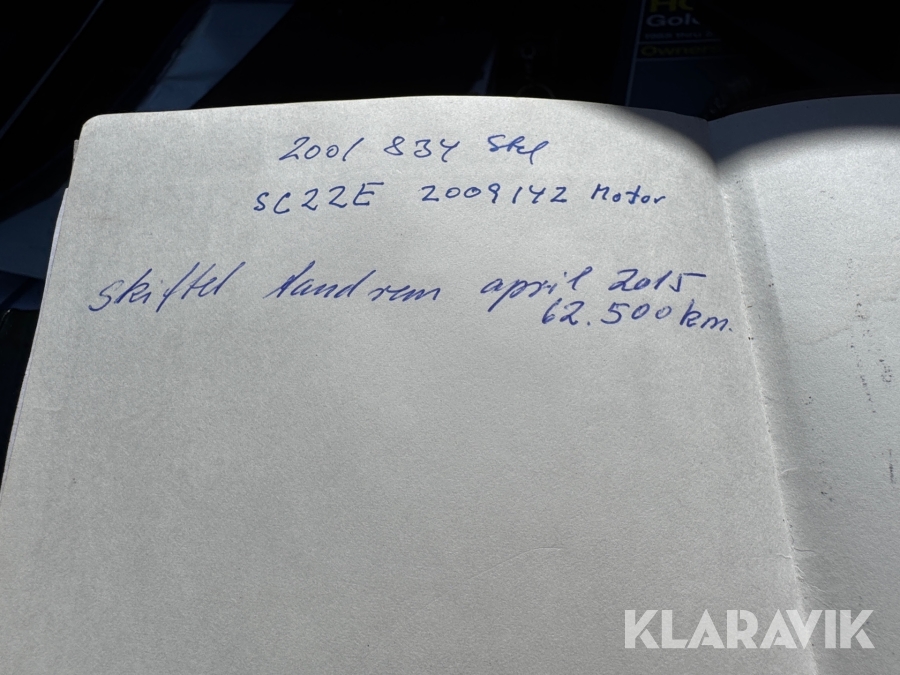 HO
Gold
Owner
2001 834 Stel
SC22E 2009142 Motor
skiftet tandrem april 2015
62.500 km.
KLARAVIK